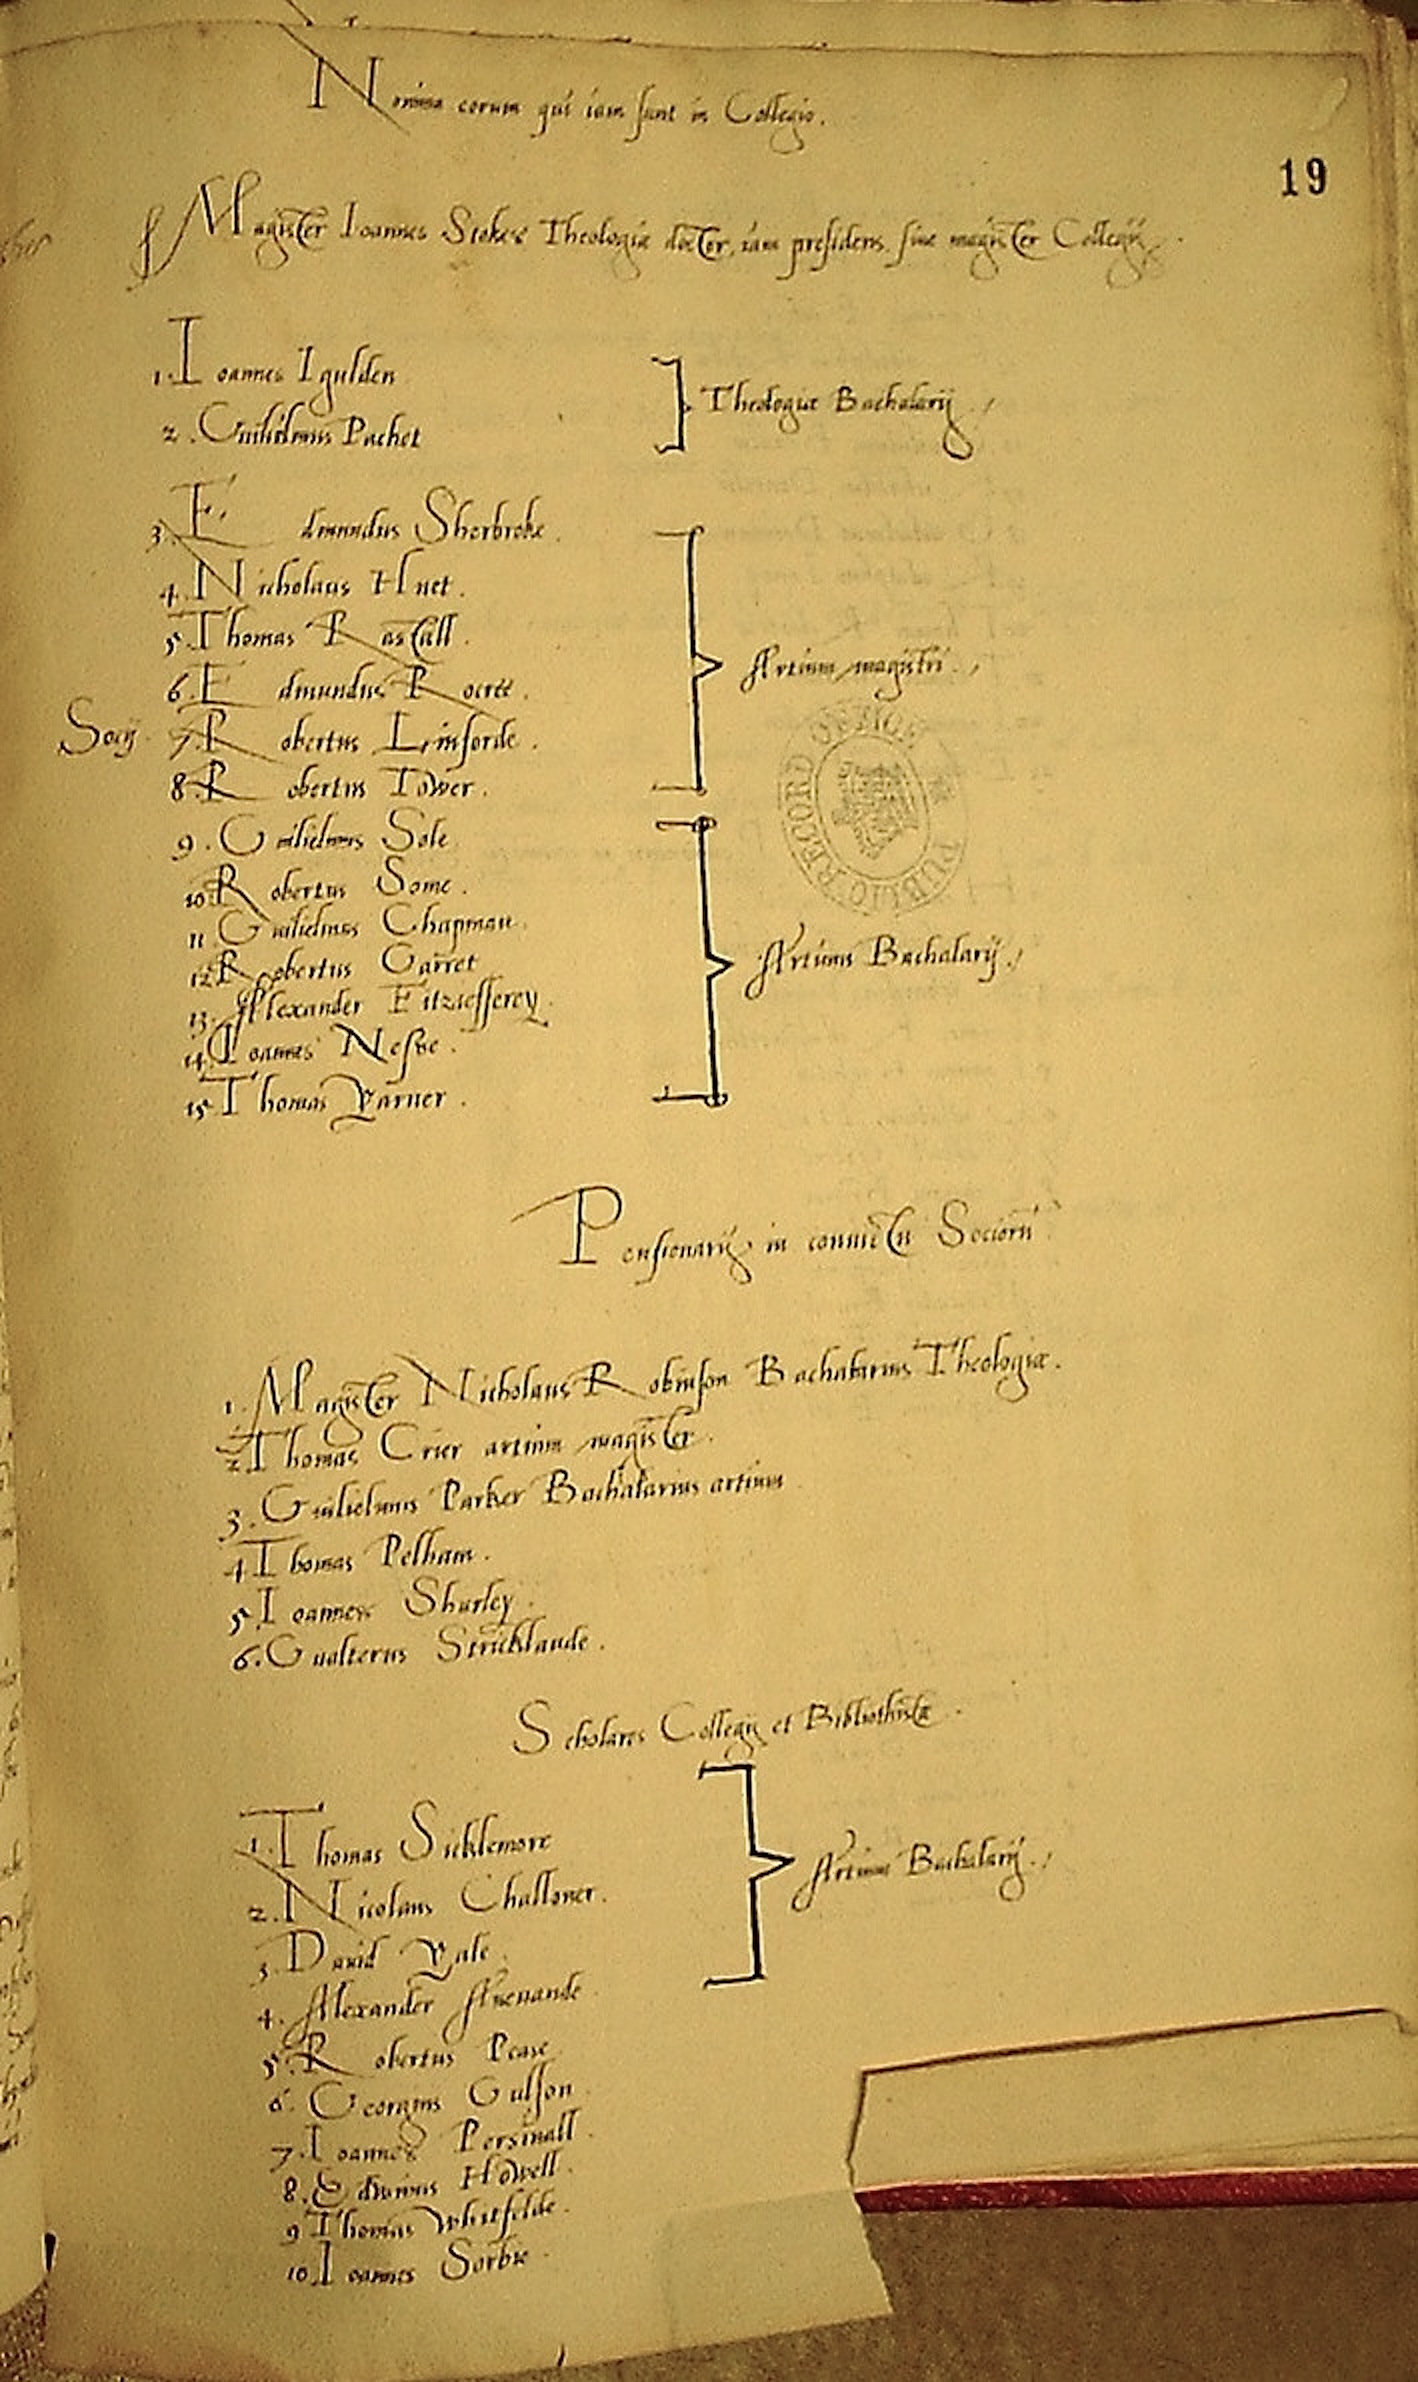 Nomina eorum qui iam sunt in Collegio.
19
Magister Ioannes Stokes Theologiæ doctor, iam presidens siue magister Collegij.
1. Ioannes Igulden
Theologiæ Bachalarij
2. Guilielmus Pachet
3. Edmundus Sherbroke.
4. Nicholaus Huet.
5. Thomas Rascall.
Artium magistri.
6. Edmundus Rocree.
Socij
7. Robertus Linforde.
8. Robertus Tower.
9. Guilielmus Sole
10. Robertus Some.
11. Guilielmus Chapman.
Artium Bachalarij.
12. Robertus Garret
13. Alexander Fitziefferey.
14. Ioannes Nesve.
15. Thomas Varner.
Pensionarij in conuictu Sociorū
1. Magister Nicholaus Robinson Bachalarius Theologiæ.
2. Thomas Crier artium magister.
3. Guilielmus Parker Bachalarius artium
4. Thomas Pelham.
5. Ioannes Shurley.
6. Gualterus Stricklande.
Scholares Collegij et Bibliothistæ.
1. Thomas Sicklemore
2. Nicolaus Challoner.
Artium Bachalarij.
3. Dauid Yale.
4. Alexander Anevande
5. Robertus Pease
6. Georgius Gulson
7. Ioannes Persiuall.
8. Edwinus Howell.
9. Thomas Whitfelde.
10. Ioannes Sorbie.
PUBLIC RECORD OFFICE